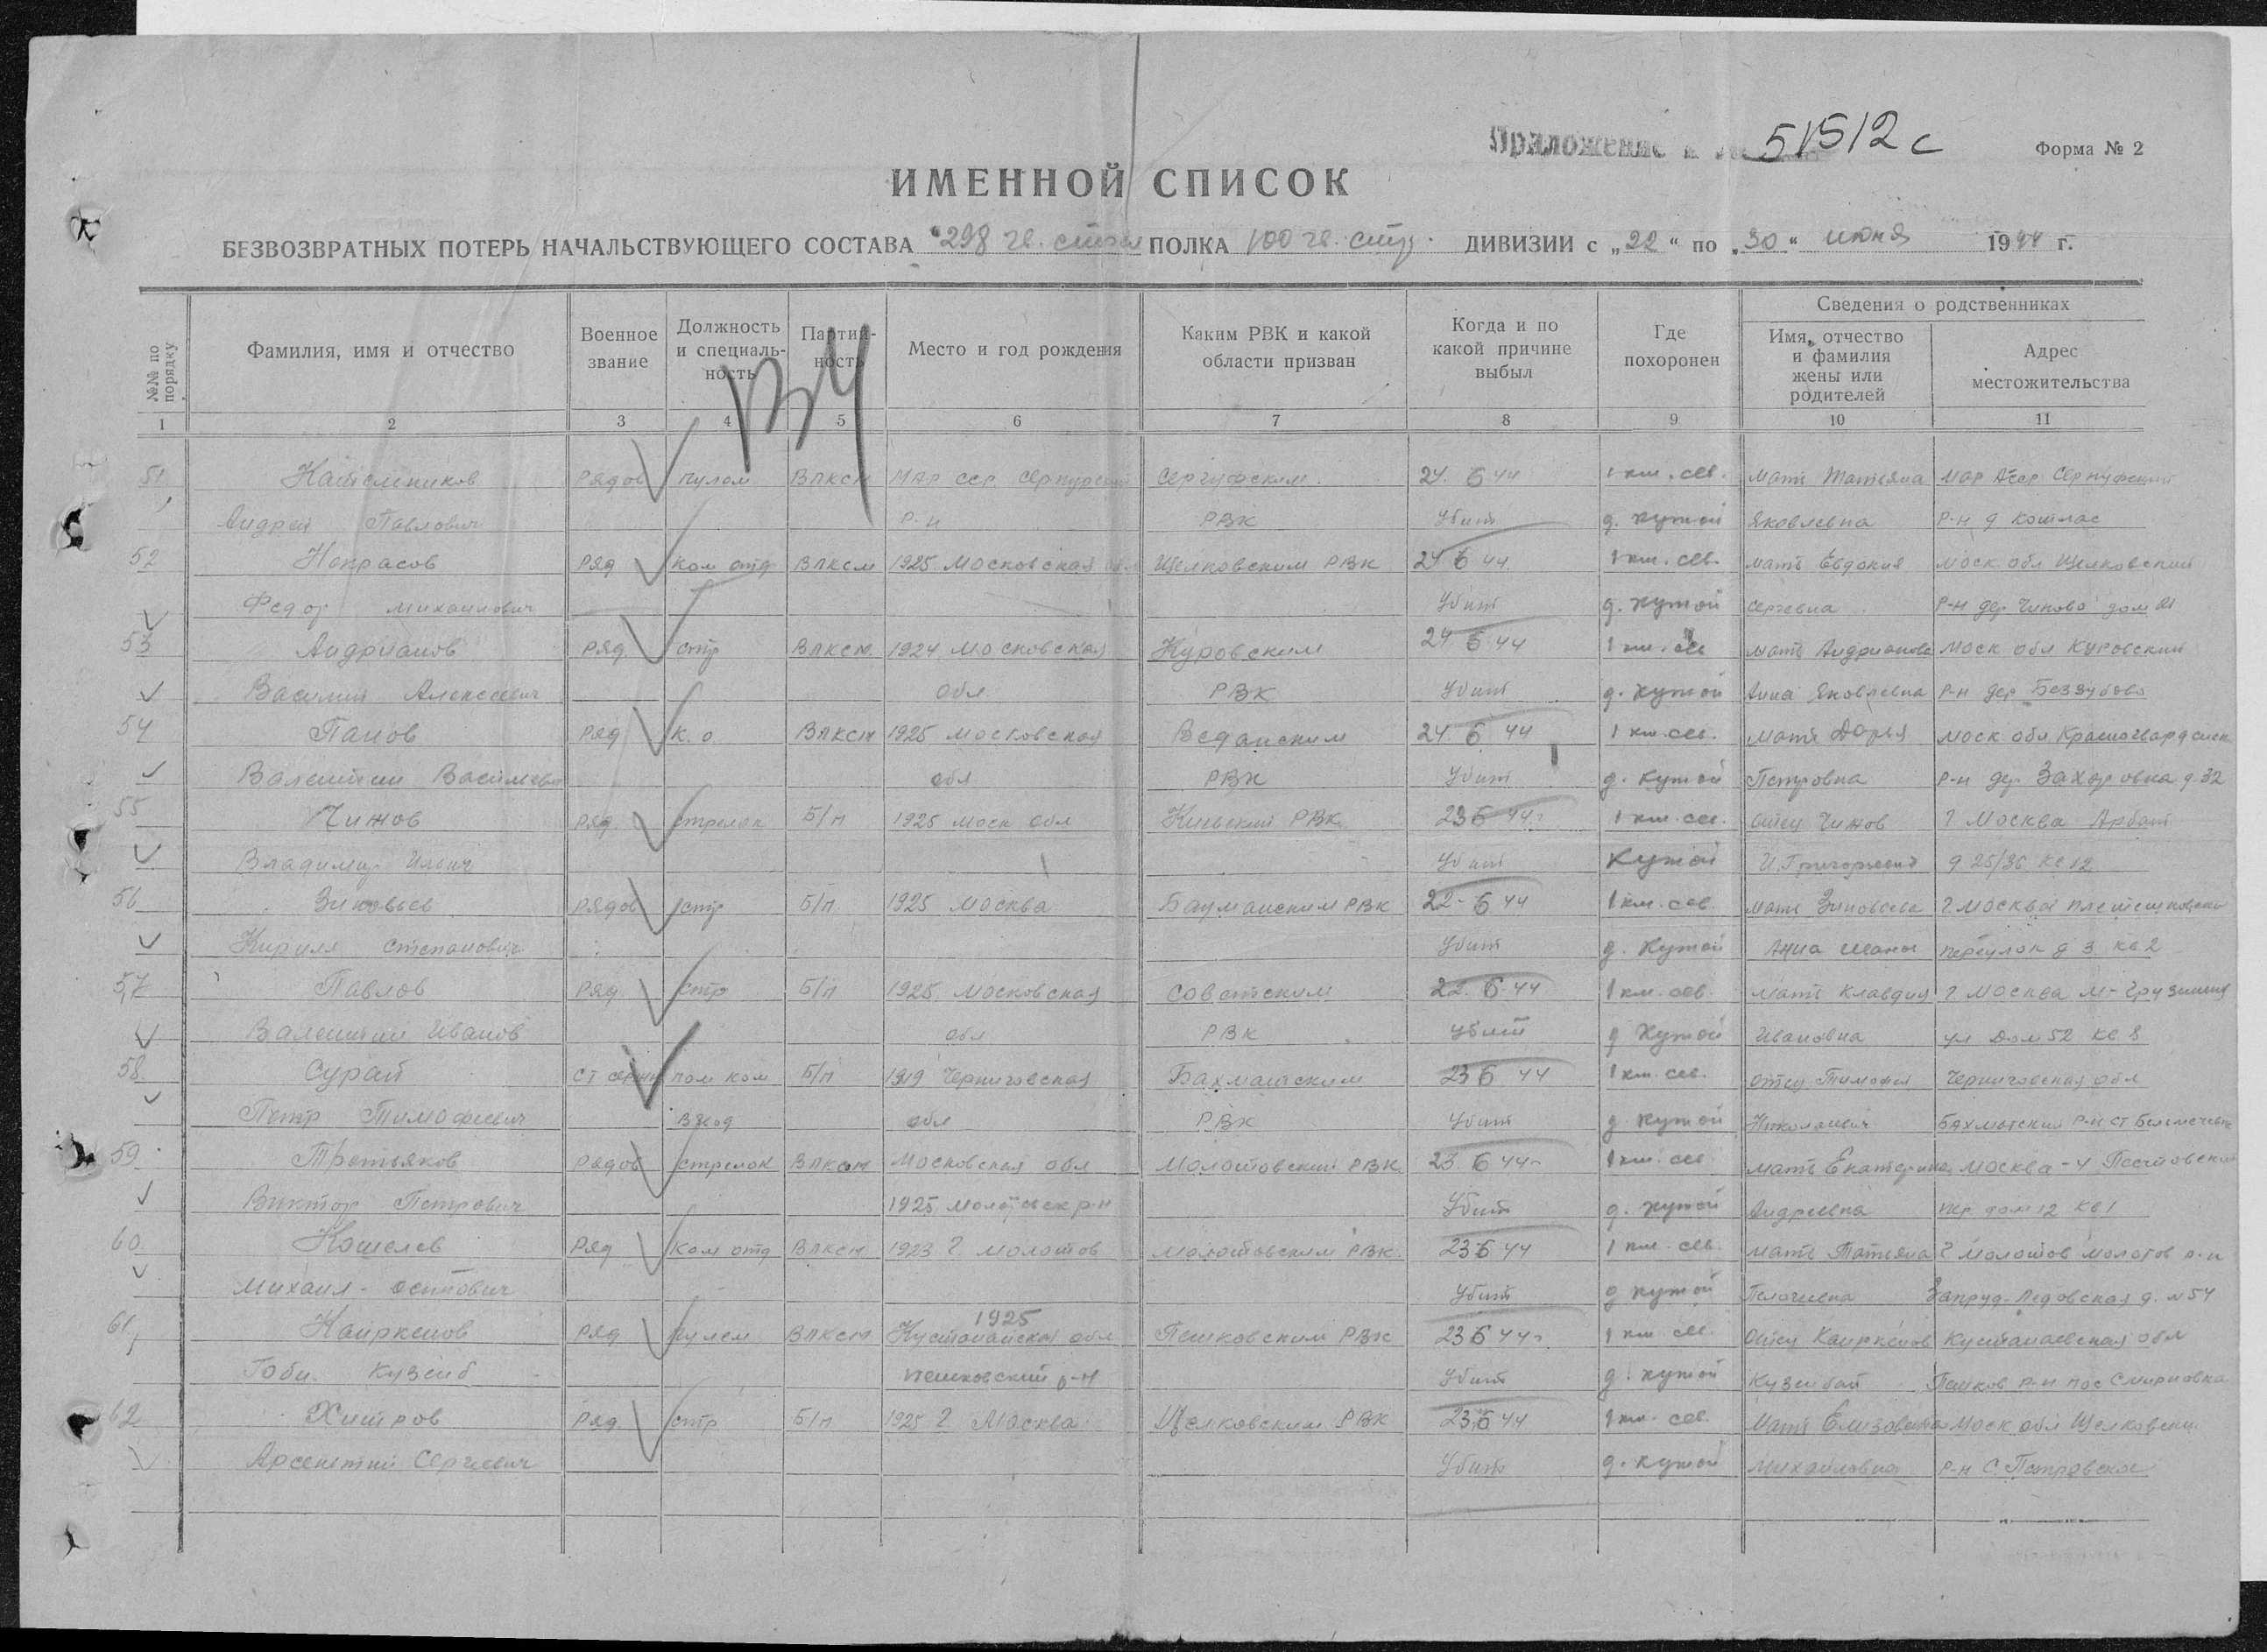 Приложение к № 51512с
Форма № 2
ИМЕННОЙ СПИСОК
БЕЗВОЗВРАТНЫХ ПОТЕРЬ НАЧАЛЬСТВУЮЩЕГО СОСТАВА 298 гв. стрел ПОЛКА 100 гв. стр. ДИВИЗИИ с „22“ по „30“ июня 1944 г.
№№ по порядку
Фамилия, имя и отчество
Военное звание
Должность и специаль-ность
Партий-ность
Место и год рождения
Каким РВК и какой области призван
Когда и по какой причине выбыл
Где похоронен
Сведения о родственниках
Имя, отчество и фамилия жены или родителей
Адрес местожительства
1 2 3 4 5 6 7 8 9 10 11
51 Рядов пулем ВЛКСМ Мар сср 24.6 44 1 км. сев. мать Татьяна
Андрей Павлович р-н РВК Убит д. кутой Яковлевна р-н д
52 Некрасов Ряд Ком отд ВЛКСМ 1925 Московская обл Щелковским РВК 24 6 44 1 км. сев. мать Евдокия моск обл Щелковский
Федор Михайлович Убит д. кутой Сергевна р-н дер
53 Андрианов Ряд стр ВЛКСМ. 1924 Московская Куровским 24 6 44 1 км. сев мать Андрианова моск обл Куровский
Василий Алексеевич обл РВК Убит д. кутой Анна Яковлевна р-н дер Беззубово
54 Панов Ряд К. о ВЛКСМ 1925 Московская 24. 6 44 1 км. сев. мать Дарья моск обл Красногвардейск
Валентин Васильев обл РВК Убит д. кутой Петровна р-н дер Захаровка д. 32
55 Чижов ряд стрелок Б/п 1925 Моск обл Киевский РВК 23 6 44 1 км. сев. отец Чижов г Москва Арбат
Владимир Ильич Убит Кутой И. Григорьевич д 25/36 кв 12
56 Зиновьев рядов стр Б/п 1925 Москва Бауманским РВК 22-6 44 1 км. сев мать Зиновьева г. Москва
Кирилл Степанович Убит д. Кутой Анна переулок д 3 кв 2
57 Павлов Ряд стр Б/п 1925 Московская Советским 22. 6 44 1 км. сев. мать Клавдия г Москва М-Грузинская
Валентин Иванов обл РВК убит д Кутой Ивановна ул Дом 52 кв 8
58 Сурай Ст серж пом ком Б/п 1919 Черниговская Бахматским 23 6 44 1 км. сев. отец Тимофей Черниговская обл
Петр Тимофеевич взвод обл РВК Убит д. кутой Николаевич Бахматский р-н ст
59 Третьяков Рядов стрелок ВЛКСМ Московская обл Молотовский РВК 23. 6 44 1 км. сев мать Екатерина Москва-4
Виктор Петрович 1925 Убит д. кутой Андреевна пер дом 12 кв 1
60 Кошелев Ряд Ком отд ВЛКСМ 1923 г. Молотов Молотовским РВК 23-6 44 1 км. сев мать Татьяна г Молотов Молотов р-н
Михаил Осипович Убит д кутой д. №54
61 Каиркенов Ряд пулем ВЛКСМ 1925 Кустанайская обл Пешковским РВК 23 6 44 1 км сев. отец Каиркенов Кустанаевская обл
пешковский р-н Убит д. кутой Кузенбай р-н пос Смирновка
62 Хитров Ряд стр Б/п 1925 г Москва Щелковским РВК 23.6 44 1 км. сев. Мать Елизавета Моск обл Щелковски
Арсентий Сергеевич Убит д. кутой Михайловна р-н с. Петровское